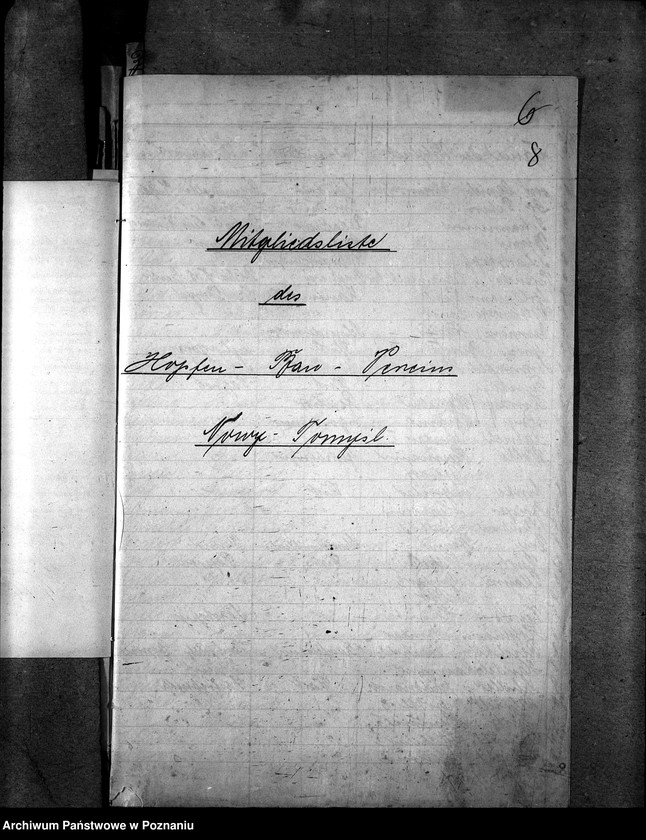 6
8
Mitgliedsliste
des
Hopfen- Bau- Vereins
Nowy- Tomysl.
Archiwum Państwowe w Poznaniu